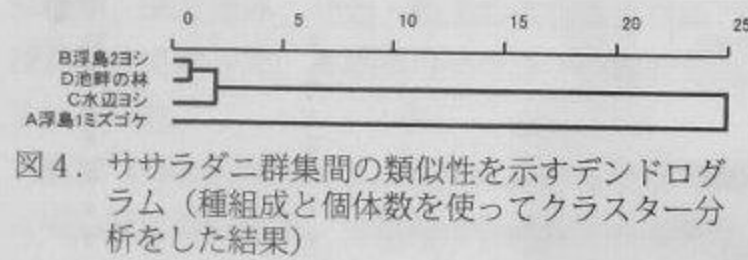 0 5 10 15 20 25
B浮島2ヨシ
D池畔の林
C水辺ヨシ
A浮島1ミズゴケ
図4. ササラダニ群集間の類似性を示すデンドログ
ラム（種組成と個体数を使ってクラスター分
析をした結果）